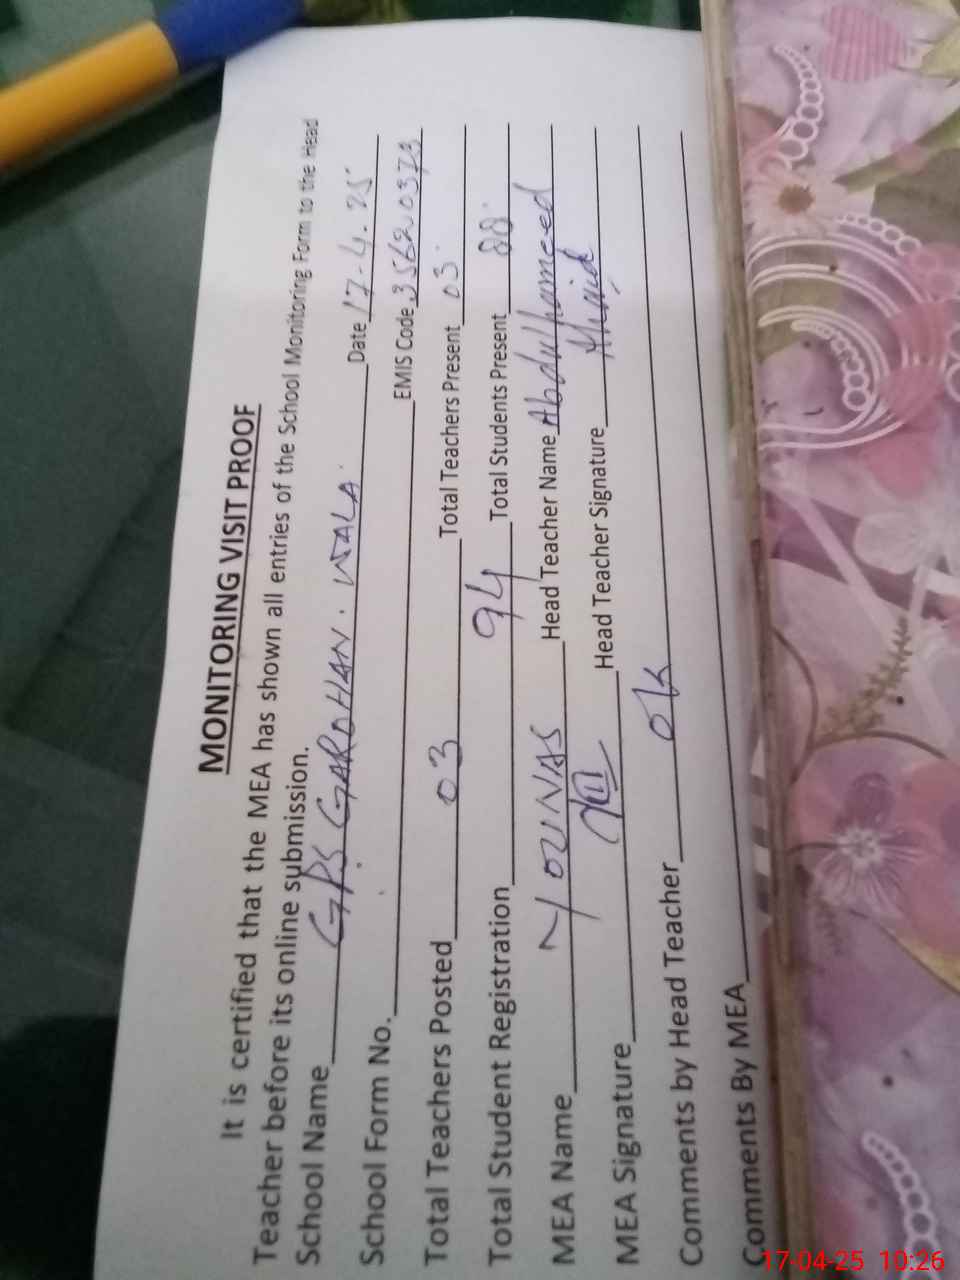 MONITORING VISIT PROOF
It is certified that the MEA has shown all entries of the School Monitoring Form to the Head
Teacher before its online submission.
School Name GPS GARDHAN WALA Date 17-4.25
School Form No. EMIS Code 35620373
Total Teachers Posted 03 Total Teachers Present 03
Total Student Registration 94 Total Students Present 88
MEA Name YOUNAS Head Teacher Name Abdulhameed
MEA Signature Head Teacher Signature
Comments by Head Teacher ok
Comments By MEA
17-04-25 10:26